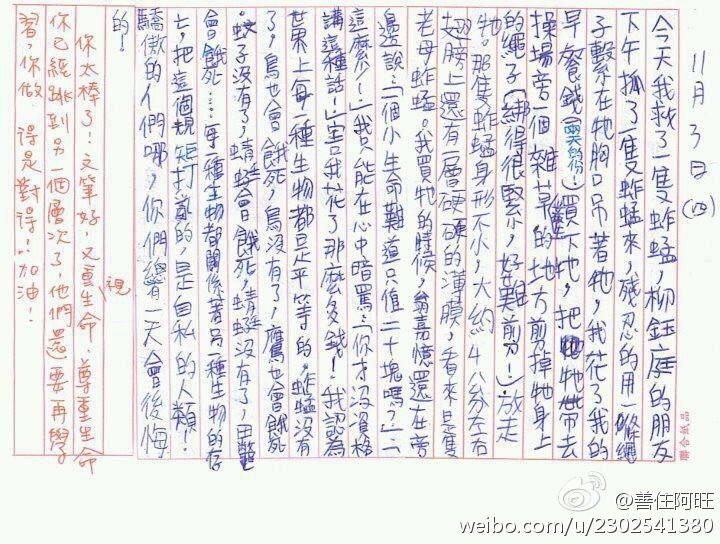 11月3日(四)
今天我救了一隻蚱蜢,柳鈺庭的朋友
下午抓了一隻蚱蜢來,殘忍的用一條繩
子繫在牠胸口吊著牠,我花了我的
早餐錢(兩天的份)買下牠,把牠帶去
操場旁一個雜草的地方剪掉牠身上
的繩子(綁得很緊,好難剪!)放走
牠。那隻蚱蜢身形不小,大約4、8公分左右
翅膀上還有一層硬硬的薄膜,看來是隻
老母蚱蜢。我買牠的時候,翁嘉憶還在旁
邊說:「一個小生命難道只值二十塊嗎?」「
這麼少!」我只能在心中暗罵:「你才沒資格
講這種話!」害我花了那麼多錢!我認為
世界上每一種生物都是平等的。蚱蜢沒有
了,鳥也會餓死,鳥沒有了,鷹也會餓死
。蚊子沒有了,蜻蜓會餓死,蜻蜓沒有了,田雞
會餓死……每一種生物都關係著另一種生物的存
亡,把這個規矩打亂的,是自私的人類!
驕傲的人們哪,你們總有一天會後悔
的!
你太棒了!文筆好,又重視生命、尊重生命
你已經跳到另一個層次了,他們還要再學
習,你做得是對得!加油!
聯合紙品
@善住阿旺
weibo.com/u/2302541380